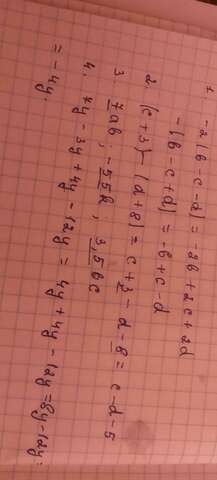 1. -2(b-c-d)=-2b+2c+2d
-(b-c+d)=-b+c-d
2. (c+3)-(d+8)=c+3-d-8=c-d-5
3. 7ab; -55k; 3,5bc
4. 7y-3y+4y-12y=4y+4y-12y=8y-12y=
=-4y.